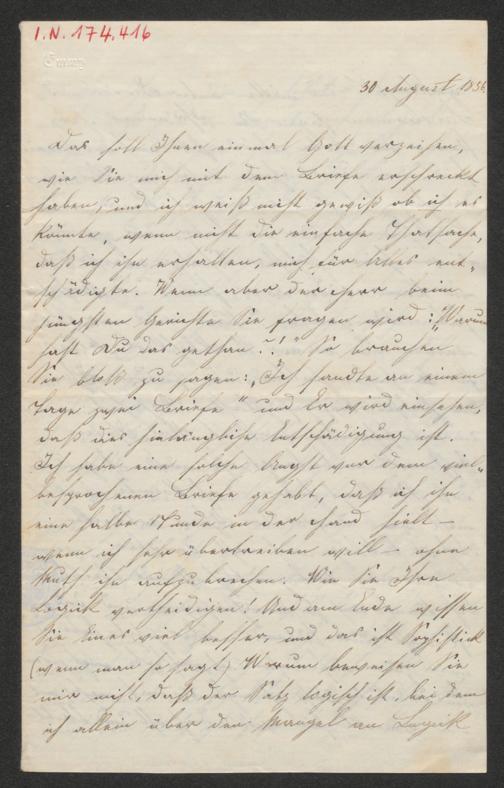 I.N. 174.416
30 August 1856.
Das soll Ihnen einmal Gott verzeihen,
wie Sie mich mit dem Briefe erschreckt
haben, und ich weiß nicht gewiß ob ich es
könnte, wenn nicht die einfache Thatsache,
daß ich ihn erhalten, mich für Alles ent-
schädigte. Wenn aber der Herr beim
jüngsten Gerichte Sie fragen wird: "Warum
hast Du das gethan?!" So brauchen
Sie bloß zu sagen: "Ich sandte an einem
Tage zwei Briefe" und Er wird einsehen,
daß dies hinlängliche Entschädigung ist.
Ich habe eine solche Angst vor dem viel-
besprochenen Briefe gehabt, daß ich ihn
eine halbe Stunde in der Hand hielt –
wenn ich sehr übertreiben will – ohne
Muth ihn aufzubrechen. Wie Sie Ihre
Logik vertheidigen! Und am Ende wissen
Sie Eines viel besser, und das ist Sophistick
(wenn man so sagt) Warum beweisen Sie
mir nicht, daß der Satz logisch ist, bei dem
ich allein über den Mangel an Logik